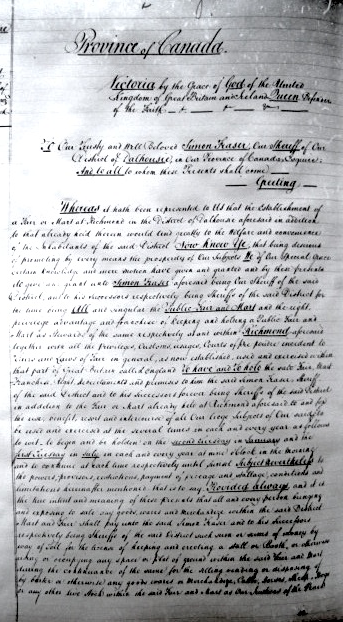 Province of Canada.
Victoria by the Grace of God of the United
Kingdom of Great Britain and Ireland Queen Defender
of the Faith
To Our Trusty and Well Beloved Simon Fraser, Our Sheriff of Our
District of Dalhousie, in Our Province of Canada, Esquire;
And to all to whom these Presents shall come
Greeting
Whereas it hath been represented to Us that the Establishment of
a Fair or Mart at Richmond in the District of Dalhousie aforesaid in addition
to that already held therein would tend greatly to the Welfare and convenience
of the Inhabitants of the said District Now Know Ye, that being desirous
of promoting by every means the prosperity of Our Subjects We of Our Special Grace
certain Knowledge and mere motion have given and granted and by these Presents
do give and grant unto Simon Fraser aforesaid being Our Sheriff of the said
District, and to his successors respectively being Sheriffs of the said District for
the time being All and singular the Public Fair and Mart and the right
privilege advantage and franchise of Keeping and holding a Public Fair and
Mart as Owners of the same respectively at and within Richmond aforesaid
together with all the Privileges, Customs, usages, Courts of Pie poudre incident to
Fairs and Laws of Fair in general, as now established, used and exercised within
that part of Great Britain called England To have and To hold the said Fair, Mart
Franchise, and premises to him the said Simon Fraser, Sheriff
of the said District and to his Successors forever being Sheriffs of the said District
in addition to the Fair or Mart already held at Richmond aforesaid to and for
the use, benefit and of all Our Liege Subjects of Our
be used and exercised at the several times in each and every year as follows
to wit, to begin and be holden on the second Tuesday in January and the
first Tuesday in July in each and every year at nine o'Clock in the Morning
and to continue at each time respectively until Subject nevertheless to
the powers, provisions, payment of and stallage, conditions and
limitations hereinafter mentioned that is to say Provided always and it is
the true intent and meaning of these presents that all and every person bringing
and exposing to sale any goods, wares and merchandize within the said District
Mart and Fair shall pay unto the said Simon Fraser and to his Successors
respectively being Sheriffs of the said District such sum or sums of Money by
way of Toll for the license of keeping and erecting a stall or Booth, or otherwise
using or occupying any space or plot of ground within the said Fair and Mart
during the continuance of the same for the selling or disposing of
by barter or otherwise any goods wares or Merchandize, Cattle, Horses, Sheep, Hogs
or any other live Stock within the said Fair and Mart as Our Justices of the Peace